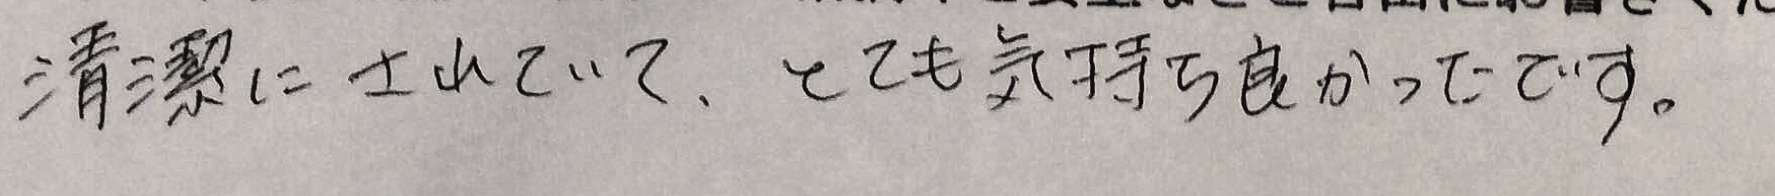 清潔にされていて、とても気持ち良かったです。